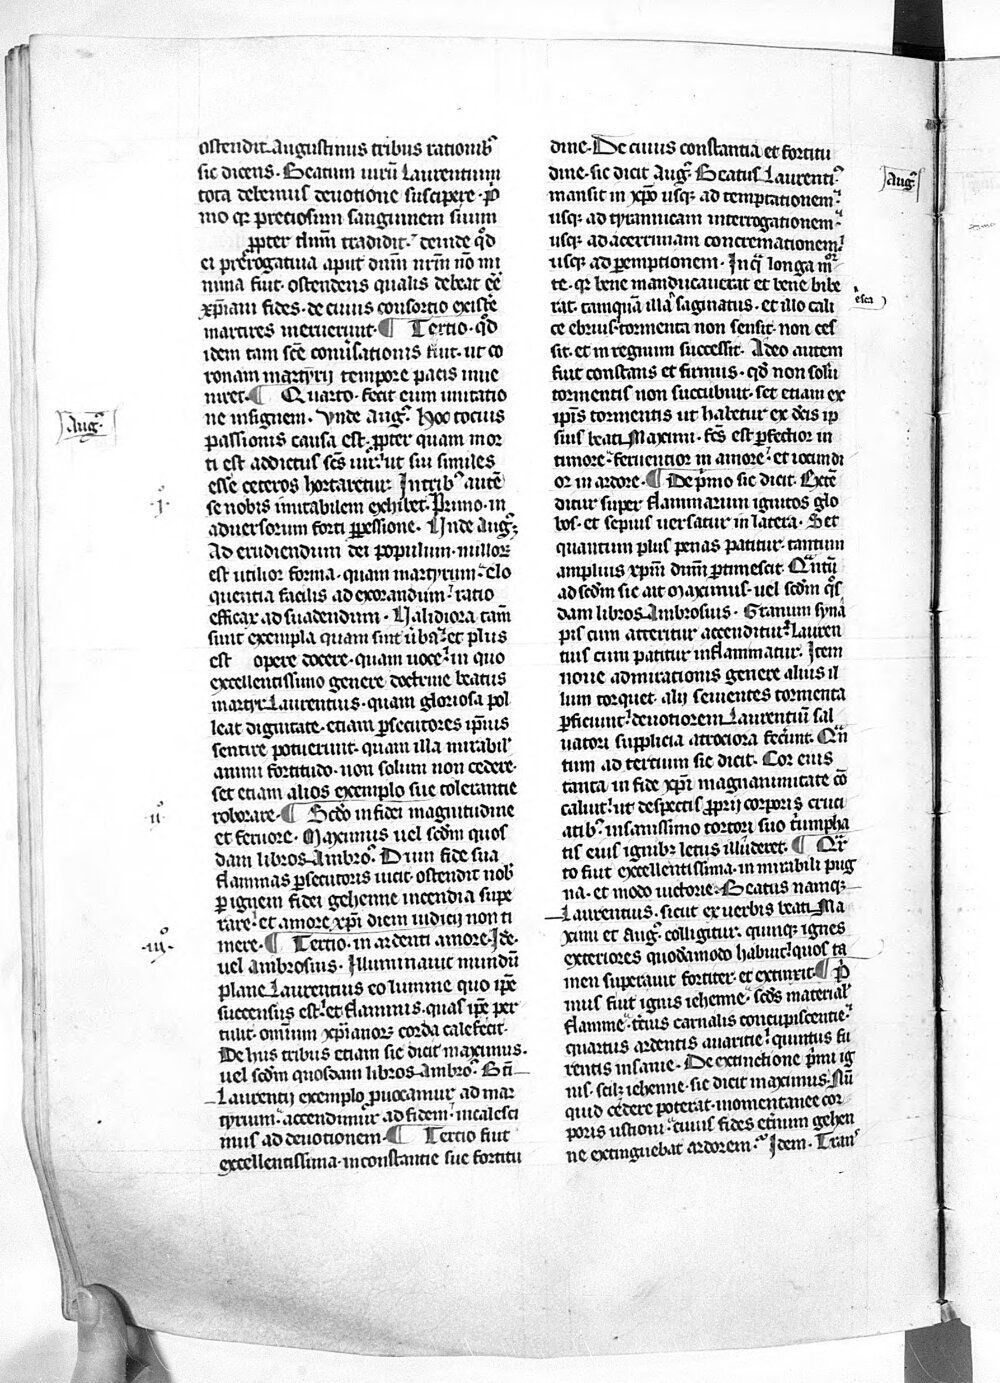 ostendit Augustinus tribus rationibꝰ
sic dicens. Beatum uirū Laurentium
tota debemus deuotione suscipere. p̄
mo qꝛ preciosum sanguinem suum
ꝓpter dn̄m tradidit. deinde qd̓
ei prerogatiua aput dn̄m nr̄m nō mi
nima fuit. ostendens qualis debeat eē
xp̄iani fides. de cuius consortio existē
martires meruerunt. ¶ Tertio. qd̓
idem tam scē conuersationis fuit. ut co
ronam martyrij tempore pacis inue
niret. ¶ Quarto. fecit eum imitatio
ne insignem. Vnde Augꝰ. Hoc tocius
passionis causa est. ꝓpter quam mor
ti est addictus scs̄ uir. ut sui similes
esse ceteros hortaretur. In tribꝰ autē
se nobis imitabilem exhibet. Primo. in
aduersorum forti ꝑpessione. Vnde Augꝰ.
Ad erudiendum dei populum. nullorꝝ
est utilior forma. quam martyrum. Elo
quentia facilis ad exorandum. ratio
efficax ad suadendum. Validiora tam̄
sunt exempla quam sint uerba. et plus
est opere docere. quam uoce. in quo
excellentissimo genere doctrine beatus
martyr Laurentius. quam gloriosa pol
leat dignitate. etiam ꝑsecutores ipsius
sentire potuerunt. quam illa mirabil̓
animi fortitudo. non solum non cedere.
set etiam alios exemplo sue tolerantie
roborare. ¶ Scd̓o in fidei magnitudine
et feruore. Maximus uel scd̓m quos
dam libros Ambroꝰ. Dum fide sua
flammas ꝑsecutoris uicit. ostendit nob̓
ꝑ ignem fidei gehenne incendia supe
rare. et amore xp̄i diem iudicij non ti
mere. ¶ Tertio. in ardenti amore. Idē.
uel Ambrosius. Illuminauit mundū
plane Laurentius eo lumine quo ip̄e
succensus est. et flammis. quas ip̄e per
tulit. omnium xp̄ianorꝝ corda calefecit.
De hijs tribus etiam sic dicit maximus.
uel scd̓m quosdam libros Ambroꝰ. Bt̄i
Laurentij exemplo ꝓuocamur ad mar
tyrium. accendimur ad fidem. incalesci
mus ad deuotionem. ¶ Tertio fuit
excellentissima. in constantie sue fortitu
Augꝰ.
.i.
.ii.
.iii.
dine. De cuius constantia et fortitu
dine. sic dicit Augꝰ. Beatus Laurentiꝰ
mansit in xp̄o usqꝫ ad temptationem.
usqꝫ ad tyrannicam interrogationem.
usqꝫ ad acerrimam concremationem.
usqꝫ ad ꝑemptionem. In qua longa mor
te. qꝛ bene manducauerat et bene bibe
rat. tamquā illa saginatus. et illo cali
ce ebrius. tormenta non sensit. non ces
sit. et in regnum successit. Adeo autem
fuit constans et firmus. qd̓ non solū
tormentis non succubuit. set etiam ex
ip̄is tormentis ut habetur ex dc̄is ip
sius beati Maximi. fc̄s est ꝑfectior in
timore. feruentior in amore. et iocundi
or in ardore. ¶ De p̄mo sic dicit. Extē
ditur super flammarum ignitos glo
bos. et sepius uersatur in latera. Set
quantum plus penas patitur. tantum
amplius xp̄m dn̄m ꝑtimescit. Qn̄tū
ad scd̓m sic ait Maximus. uel scd̓m qos
dam libros Ambrosius. Granum syna
pis cum atteritur accenditur. Lauren
tius cum patitur inflammatur. Item
noue admirationis genere alius il
lum torquet. alij seuientes tormenta
ꝑficiunt. deuotiorem Laurentiū sal
uatori supplicia atrociora fecerunt. Qn̄
tum ad tertium sic dicit. Cor eius
tanta in fide xp̄i magnanimitate cō
caluit. ut despectis ꝓprij corporis cruci
atibꝰ. insanissimo tortori suo triumpha
tis eius ignibꝫ letus illuderet. ¶ Qr̄
to fuit excellentissima. in mirabili pug
na. et modo uictorie. Beatus namqꝫ
Laurentius. sicut ex uerbis beati Ma
ximi et Augꝰ. colligitur. quinqꝫ ignes
exteriores quodamodo habuit. quos ta
men superauit fortiter. et extinxit. ¶ P̄
mus fuit ignis iehenne. scd̓s material̓
flamme. tercius carnalis concupiscentie.
quartus ardentis auaritie. quintus fu
rentis insanie. De extinctione p̄mi ig
nis. scilꝫ iehenne. sic dicit maximus. Nū
quid cedere poterat. momentanee cor
poris ustioni. cuius fides eternum gehen
ne extinguebat ardorem. Idem. Trans
Augꝰ
esca